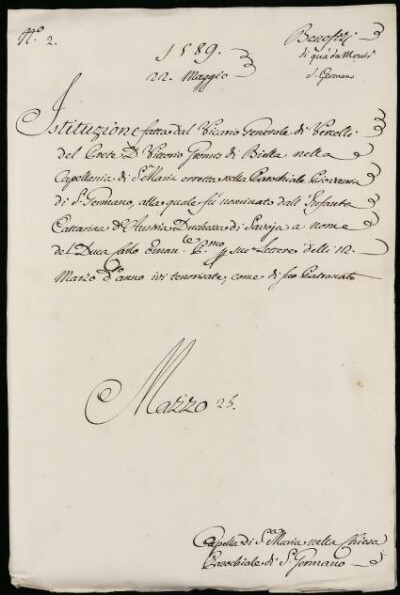 N.º 2.
1589.
22. Maggio
Benefizi
di quà da Monti
S. Germano
Istituzione fatta dal Vicario Generale di Vercelli
del Prete D. Vittorio di Biella nella
Capellania di S. Maria eretta nella Parochiale
di S. Germano, alla quale fù nominato dall' Infanta
Cattarina d'Austria Duchessa di Savoja a nome
del Duca Carlo Eman.le sue Lettere delli 12.
Marzo d.º anno ivi tenorisate, come di suo Patronato
Mazzo 25.
Capella di S. Maria nella Chiesa
Parochiale di S. Germano